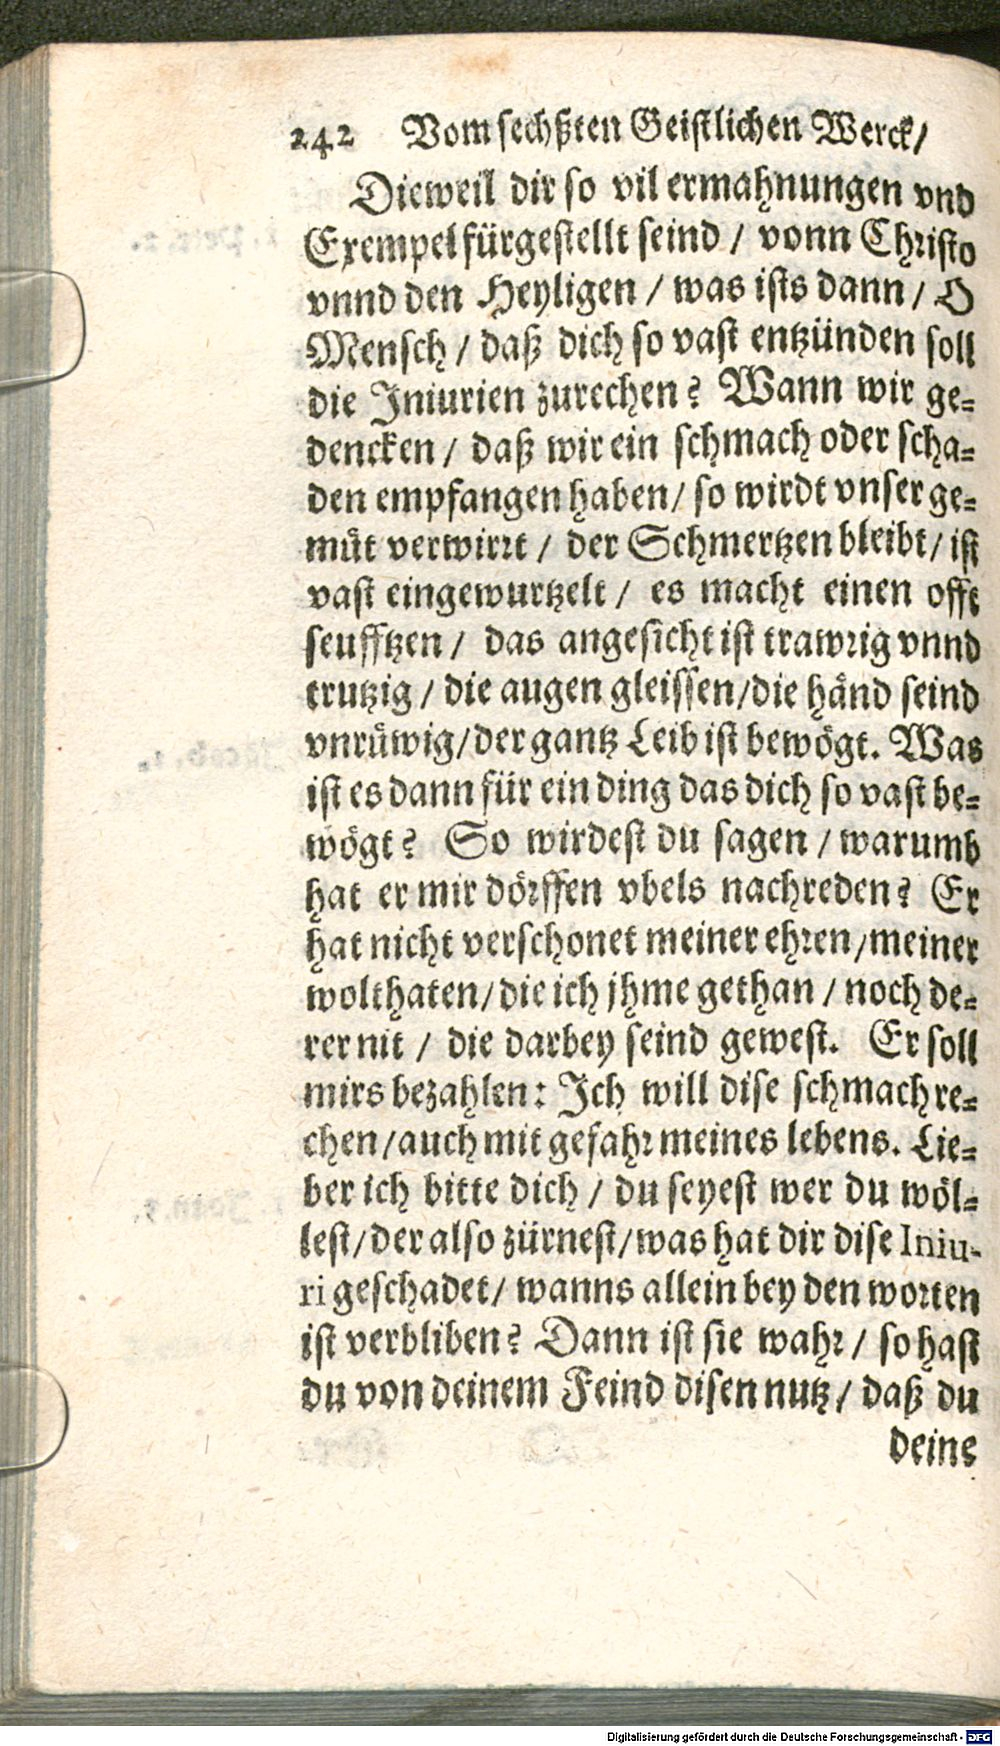 242 Vom sechßten Geistlichen Werck /
Dieweil dir so vil ermahnungen vnd
Exempel fürgestellt seind / vonn Christo
vnnd den Heyligen / was ists dann / O
Mensch / daß dich so vast entzünden soll
die Iniurien zurechen? Wann wir ge-
dencken / daß wir ein schmach oder scha-
den empfangen haben / so wirdt vnser ge-
müt verwirrt / der Schmertzen bleibt / ist
vast eingewurtzelt / es macht einen offt
seufftzen / das angesicht ist trawrig vnnd
trutzig / die augen gleissen / die händ seind
vnrüwig / der gantz Leib ist bewögt. Was
ist es dann für ein ding das dich so vast be-
wögt? So wirdest du sagen / warumb
hat er mir dörffen vbels nachreden? Er
hat nicht verschonet meiner ehren / meiner
wolthaten / die ich jhme gethan / noch de-
rer nit / die darbey seind gewest. Er soll
mirs bezahlen: Ich will dise schmach re-
chen / auch mit gefahr meines lebens. Lie-
ber ich bitte dich / du seyest wer du wöl-
lest / der also zürnest / was hat dir dise Iniu-
ri geschadet / wanns allein bey den worten
ist verbliben? Dann ist sie wahr / so hast
du von deinem Feind disen nutz / daß du
deine
Digitalisierung gefördert durch die Deutsche Forschungsgemeinschaft - DFG